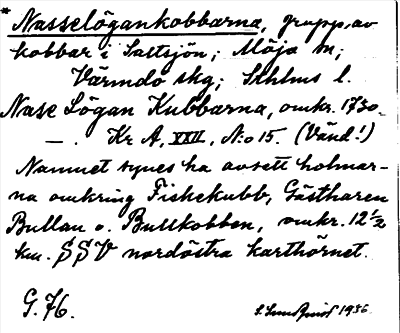 * Nasselögankobbarna, grupp av
kobbar i Saltsjön; Möja sn;
Värmdö skg; Sthlms l.
Nase Lögan Kubbarna, omkr. 1730.
— . Kr A, XXII, N:o 15. (Vänd!)
Namnet synes ha avsett holmar-
na omkring Fishekubb, Gästharen
Bullan o. Bullkobben, omkr. 12 1/2
km. SSV nordöstra karthörnet.
G. 76. S. Lundquist 1936